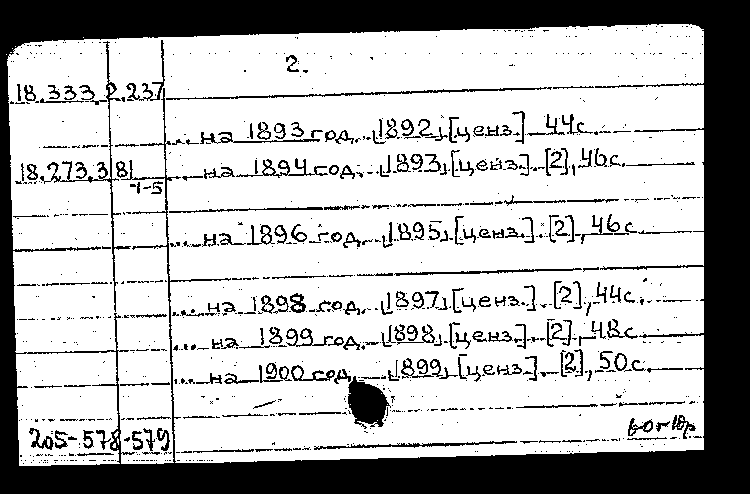 2.
18.333.2.237
... на 1893 год. [1892] [ценз.] 44с.
18.273.3.81 ... на 1894 год. [1893] [ценз.]. [2], 46с.
1-5
... на 1896 год. [1895] [ценз.]. [2], 46с.
... на 1898 год. [1897] [ценз.]. [2], 44с.
... на 1899 год. [1898] [ценз.]. [2], 48с.
... на 1900 год. [1899] [ценз.]. [2], 50с.
205-578-579